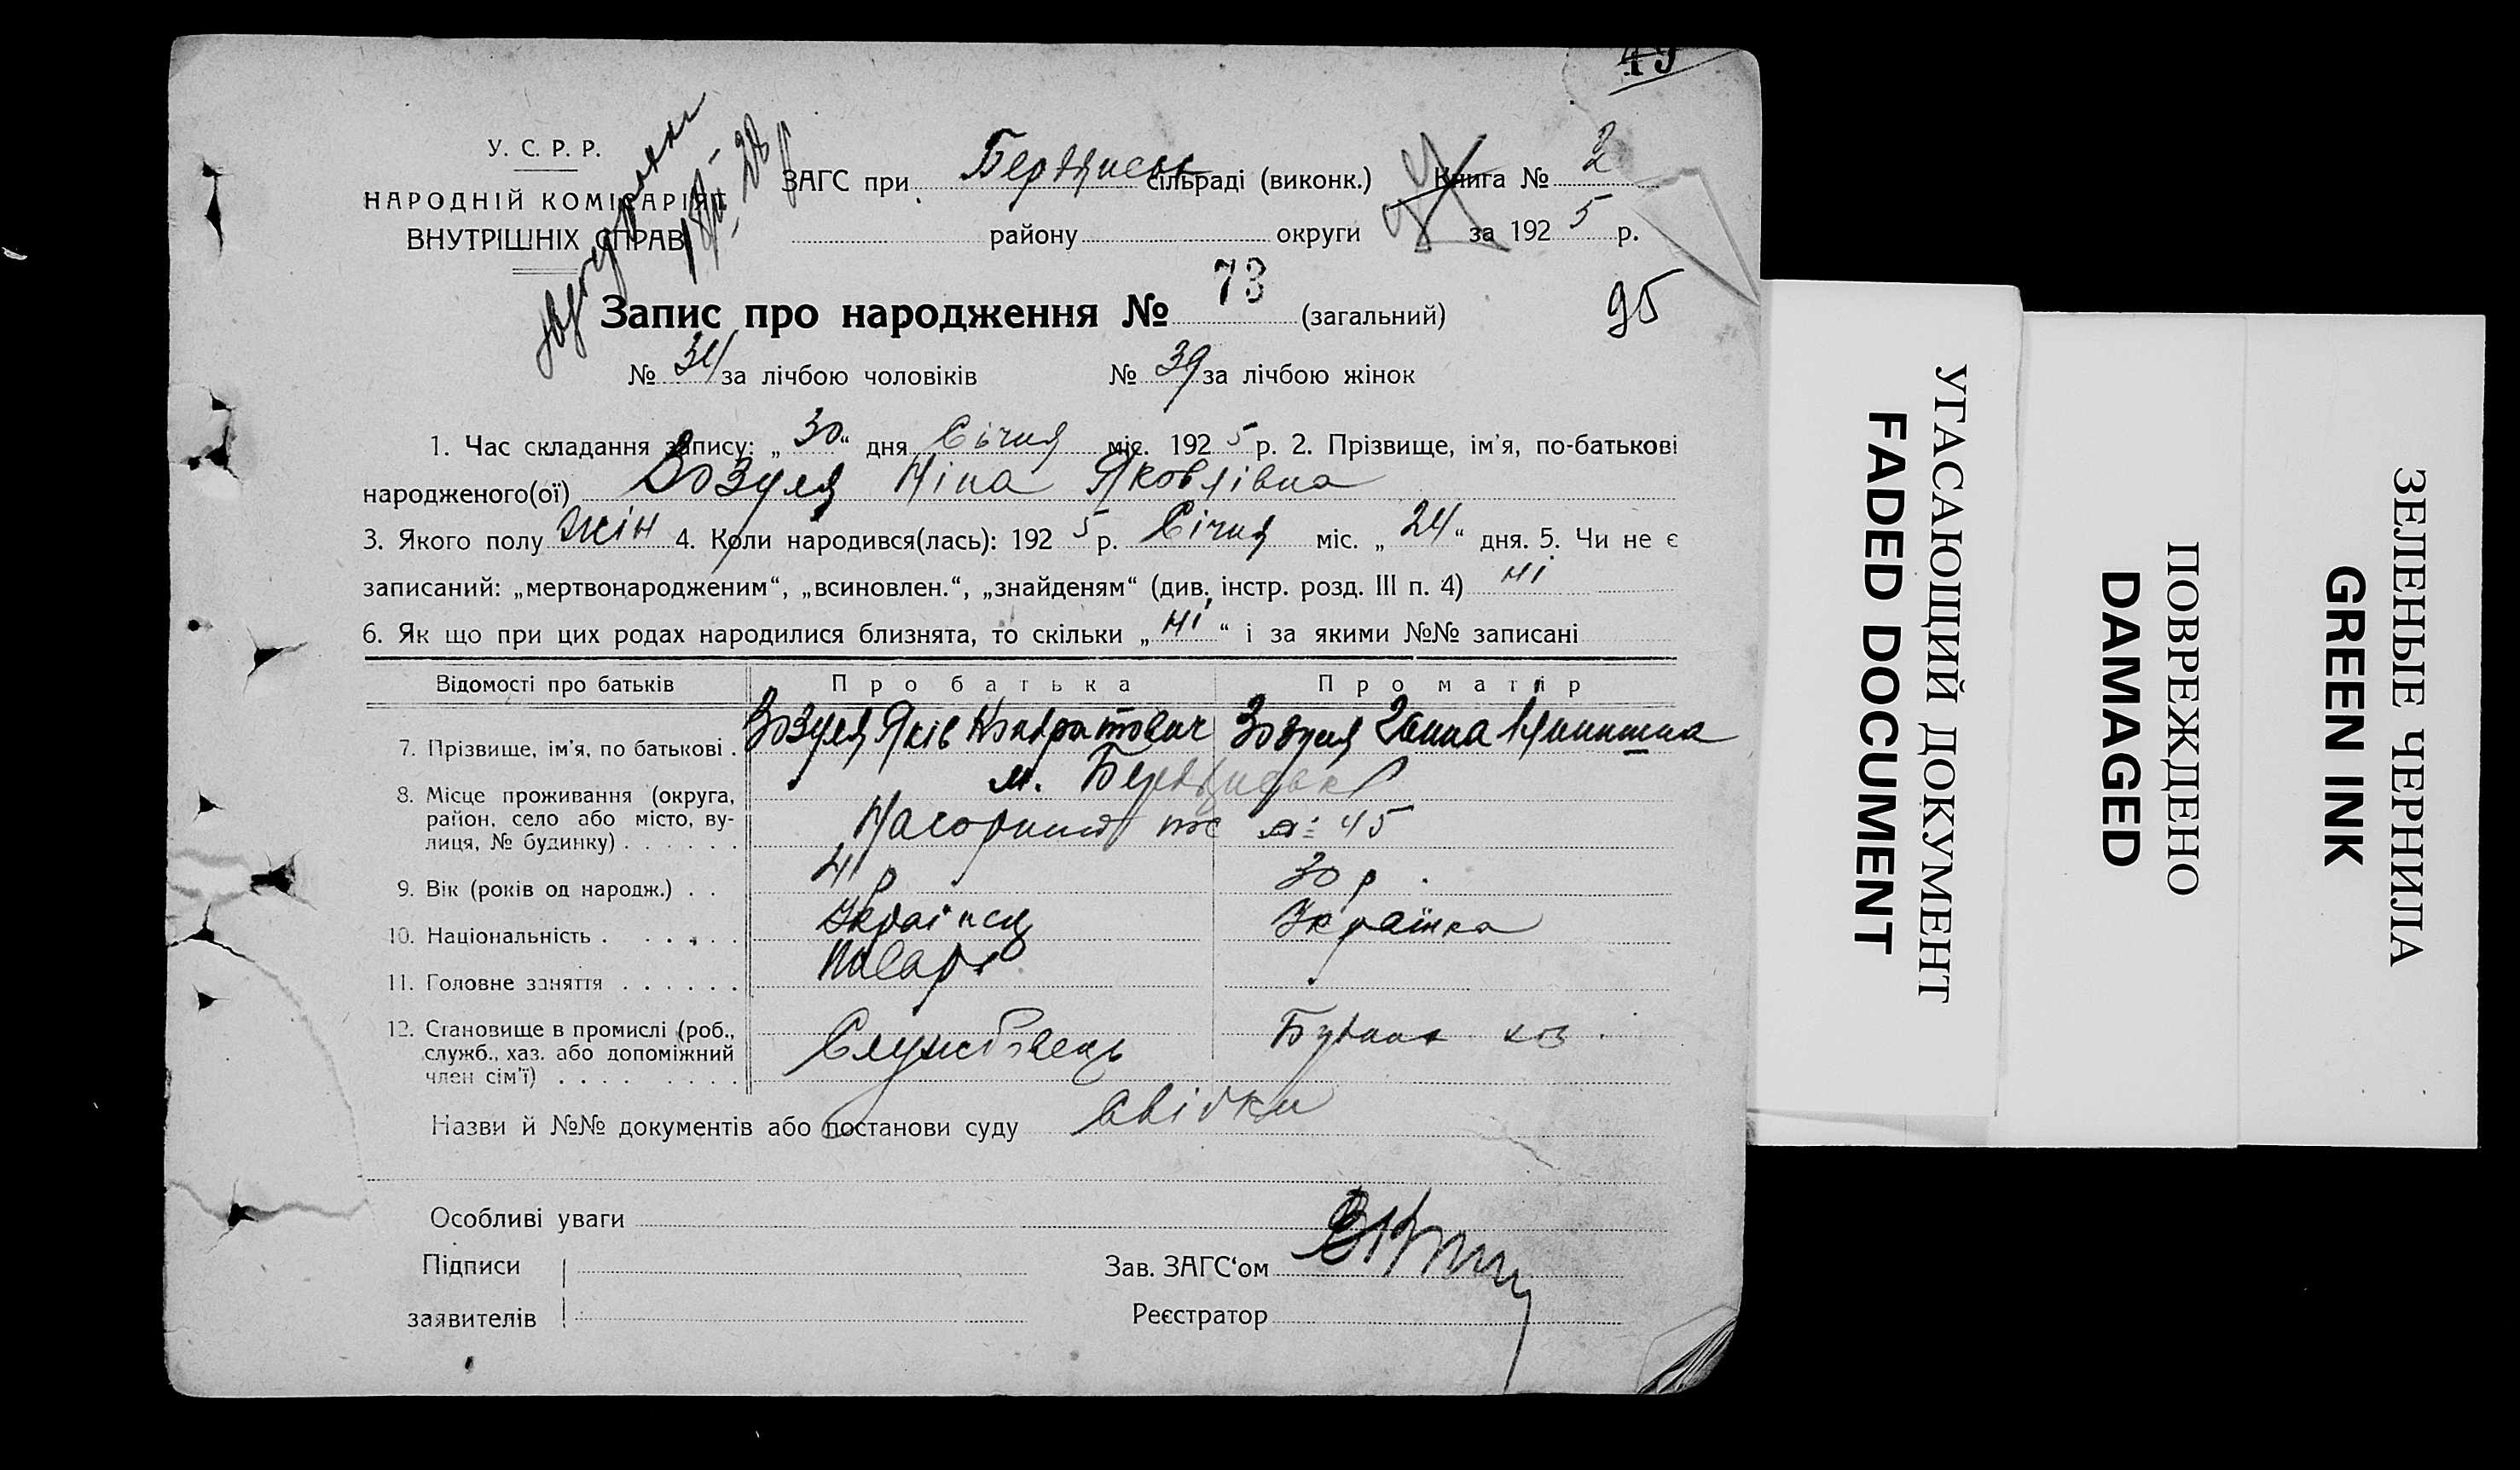 49
У. С. Р. Р.
НАРОДНІЙ КОМІСАРІЯТ
ВНУТРІШНІХ СПРАВ
ЗАГС при Бердянськ сільраді (виконк.) Книга № 2
району округи за 1925 р.
Запис про народження № 73 (загальний) 95
№ 34 за лічбою чоловіків № 39 за лічбою жінок
1. Час складання запису: „30“ дня Січня міс. 1925 р. 2. Прізвище, ім'я, по-батькові
народженого(ої) Зозуля Ніна Яковлівна
3. Якого полу жін 4. Коли народився(лась): 1925 р. Січня міс. „24“ дня. 5. Чи не є
записаний: „мертвонародженим“, „всиновлен.“, „знайденям“ (див. інстр. розд. III п. 4) ні
6. Як що при цих родах народилися близнята, то скільки „ні“ і за якими №№ записані
Відомості про батьків Про батька Про матір
7. Прізвище, ім'я, по батькові . Зозуля Яків Кондратович Зозуля Ганна
8. Місце проживання (округа, район, село або місто, вулиця, № будинку) . . . . . . м. Бердянськ
Нагорная 45
9. Вік (років од народж.) . . 41 р 30 р.
10. Національність . . . . . Українец Українка
11. Головне заняття . . . . . .
12. Становище в промислі (роб., служб., хаз. або допоміжний член сім'ї) . . . . . . . . Службовець
Назви й №№ документів або постанови суду
Особливі уваги
Підписи
заявителів
Зав. ЗАГС'ом
Реєстратор
УГАСАЮЩИЙ ДОКУМЕНТ
FADED DOCUMENT
ПОВРЕЖДЕНО
DAMAGED
ЗЕЛЕНЫЕ ЧЕРНИЛА
GREEN INK